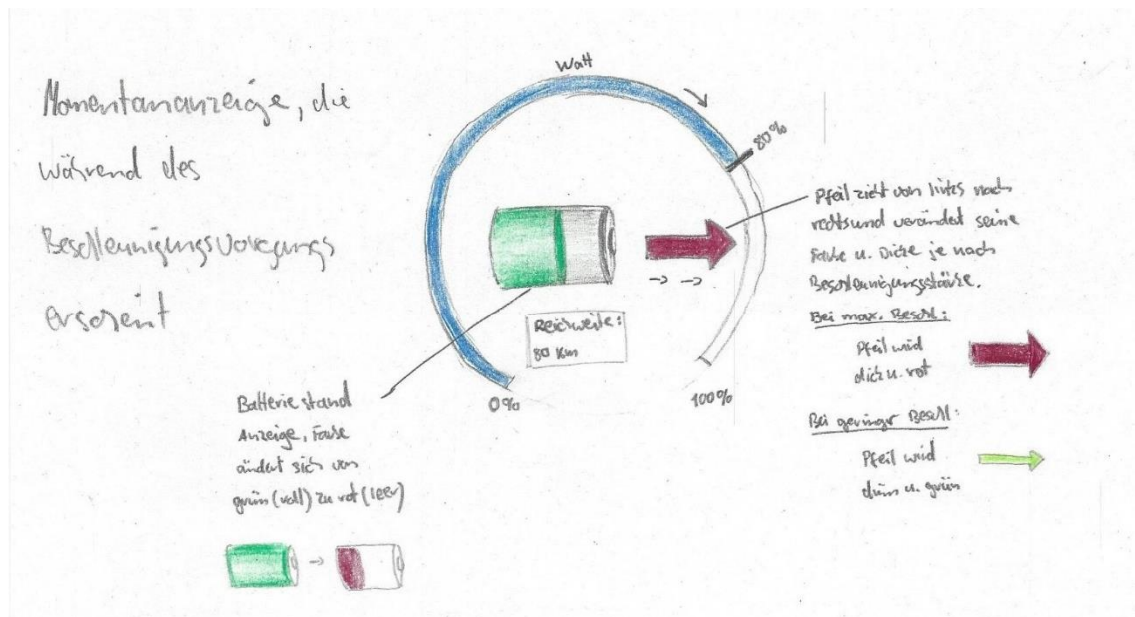 Momentananzeige, die
während des
Beschleunigungsvorgangs
erscheint
Watt
80%
0%
100%
Reichweite:
80 Km
Pfeil zieht von links nach
rechts und verändert seine
Farbe u. Dicke je nach
Beschleunigungsstärke.
Bei max. Beschl.:
Pfeil wird
dick u. rot
Bei geringer Beschl.:
Pfeil wird
dünn u. grün
Batterie stand
Anzeige, Farbe
ändert sich von
grün (voll) zu rot (leer)